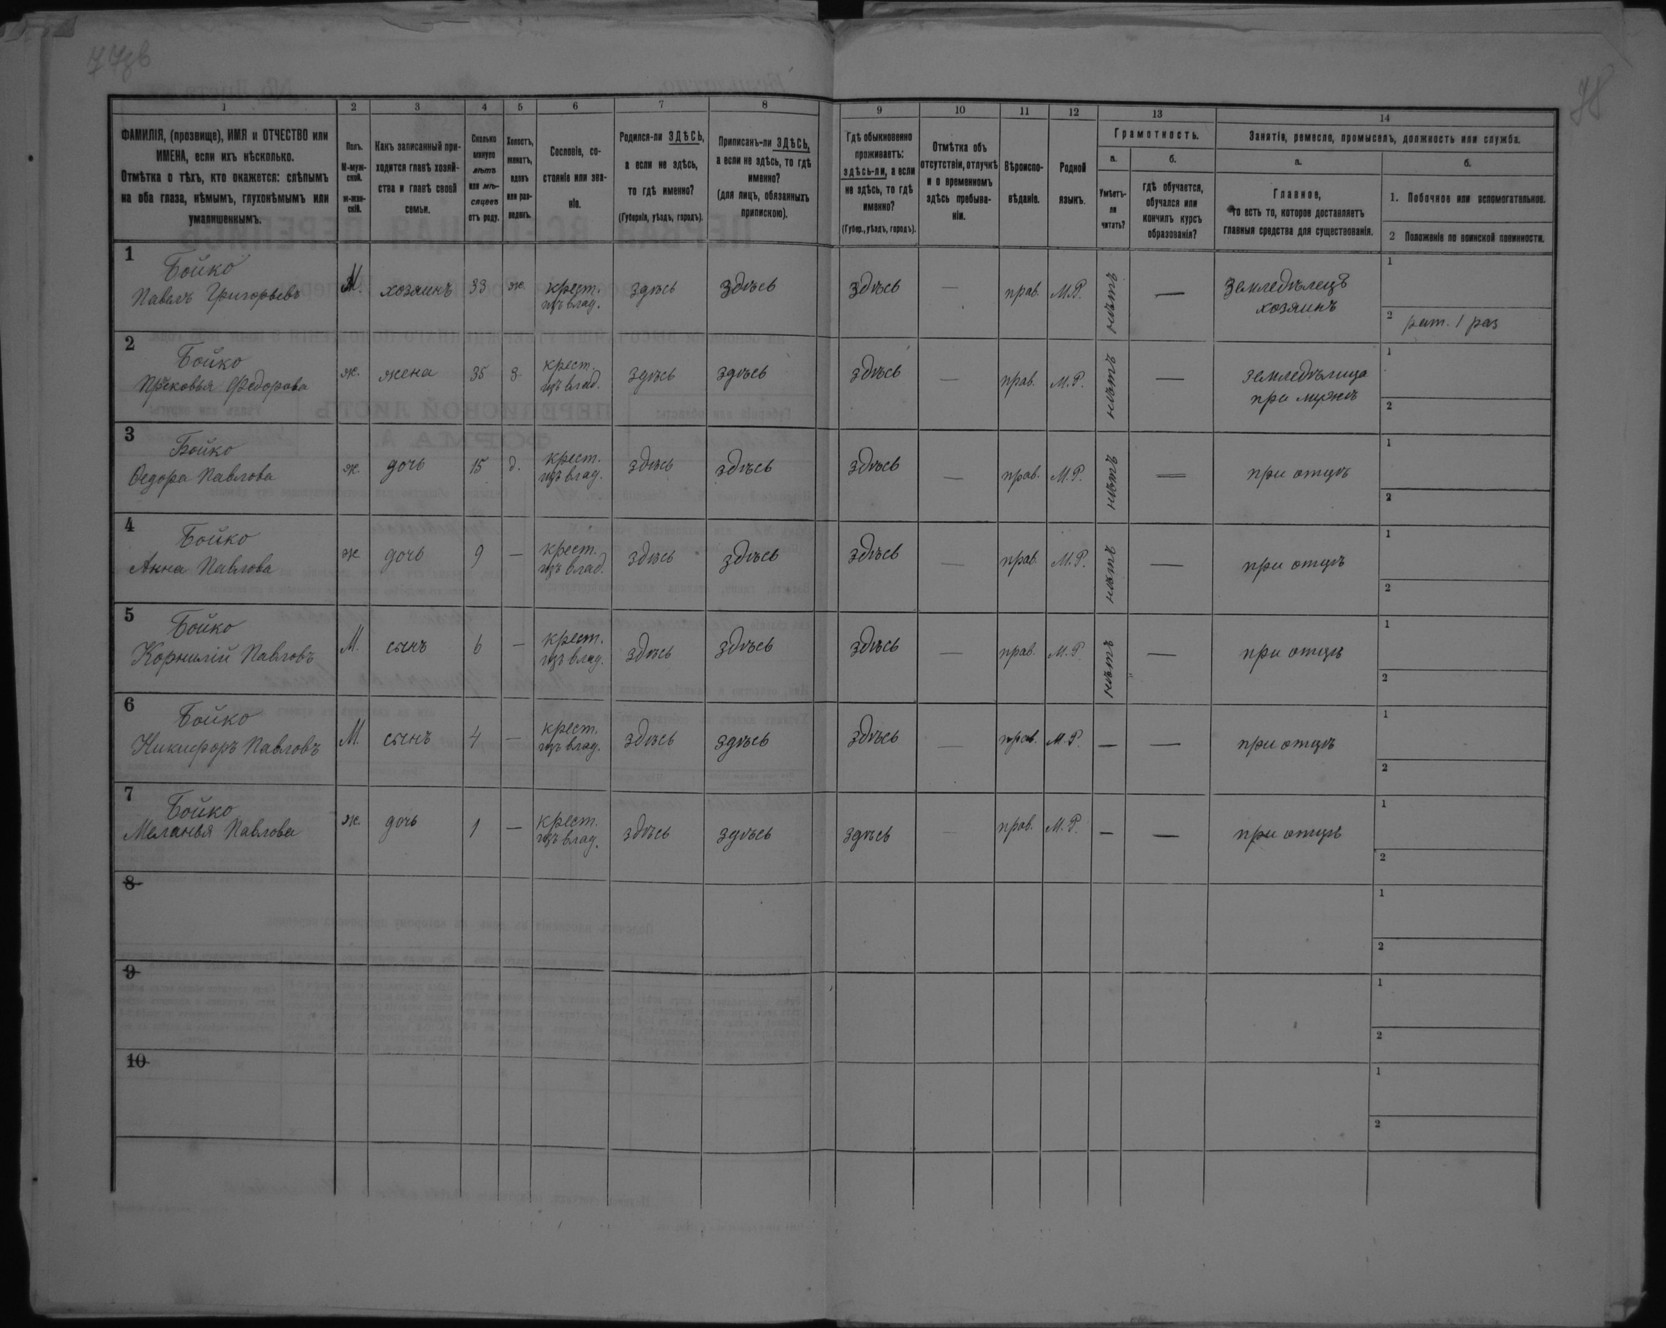 77зв
78
1
2
3
4
5
6
7
8
9
10
11
12
13
14
ФАМИЛІЯ, (прозвище), ИМЯ и ОТЧЕСТВО или
ИМЕНА, если ихъ нѣсколько.
Отмѣтка о тѣхъ, кто окажется: слѣпымъ
на оба глаза, нѣмымъ, глухонѣмымъ или
умалишеннымъ.
Полъ.
М-муж-
ской.
ж-жен-
скій.
Какъ записанный при-
ходится главѣ хозяй-
ства и главѣ своей
семьи.
Сколько
минуло
лѣтъ
или мѣ-
сяцевъ
отъ роду.
Холостъ,
женатъ,
вдовъ
или раз-
веденъ.
Сословіе, со-
стояніе или зва-
ніе.
Родился-ли ЗДѢСЬ,
а если не здѣсь,
то гдѣ именно?
(Губернія, уѣздъ, городъ).
Приписанъ-ли ЗДѢСЬ,
а если не здѣсь, то гдѣ
именно?
(для лицъ, обязанныхъ
припискою).
Гдѣ обыкновенно
проживаетъ:
здѣсь-ли, а если
не здѣсь, то гдѣ
именно?
(Губер., уѣздъ, городъ).
Отмѣтка объ
отсутствіи, отлучкѣ
и о временномъ
здѣсь пребыва-
ніи.
Вѣроиспо-
вѣданіе.
Родной
языкъ.
Грамотность.
а.
Умѣетъ-
ли
читать?
б.
гдѣ обучается,
обучался или
кончилъ курсъ
образованія?
Занятіе, ремесло, промыселъ, должность или служба.
а.
Главное,
то есть то, которое доставляетъ
главныя средства для существованія.
б.
1. Побочное или вспомогательное.
2 Положеніе по воинской повинности.
1
Бойко
Павелъ Григорьевъ
М. хозяинъ 33 ж. крест. здѣсь здѣсь здѣсь — прав. М.Р. нѣтъ — Земледѣлецъ 1
изъ влад. хозяинъ
2 рат. 1 раз
2
Бойко
Прасковья Федорова
ж. жена 35 з. крест. здѣсь здѣсь здѣсь — прав. М.Р. нѣтъ — земледѣлица 1
изъ влад. при мужѣ
2
3
Бойко
Ѳедора Павлова
ж. дочь 15 д. крест. здѣсь здѣсь здѣсь — прав. М.Р. нѣтъ — при отцѣ 1
изъ влад.
2
4
Бойко
Анна Павлова
ж дочь 9 — крест. здѣсь здѣсь здѣсь — прав. М.Р. нѣтъ — при отцѣ 1
изъ влад.
2
5
Бойко
Корнилій Павловъ
М. сынъ 6 — крест. здѣсь здѣсь здѣсь — прав. М.Р. нѣтъ — при отцѣ 1
изъ влад.
2
6
Бойко
Никифоръ Павловъ
М. сынъ 4 — крест. здѣсь здѣсь здѣсь — прав. М.Р. — — при отцѣ 1
изъ влад.
2
7
Бойко
Меланья Павлова
ж. дочь 1 — крест. здѣсь здѣсь здѣсь — прав. М.Р. — — при отцѣ 1
изъ влад.
2
8
1
2
9
1
2
10
1
2